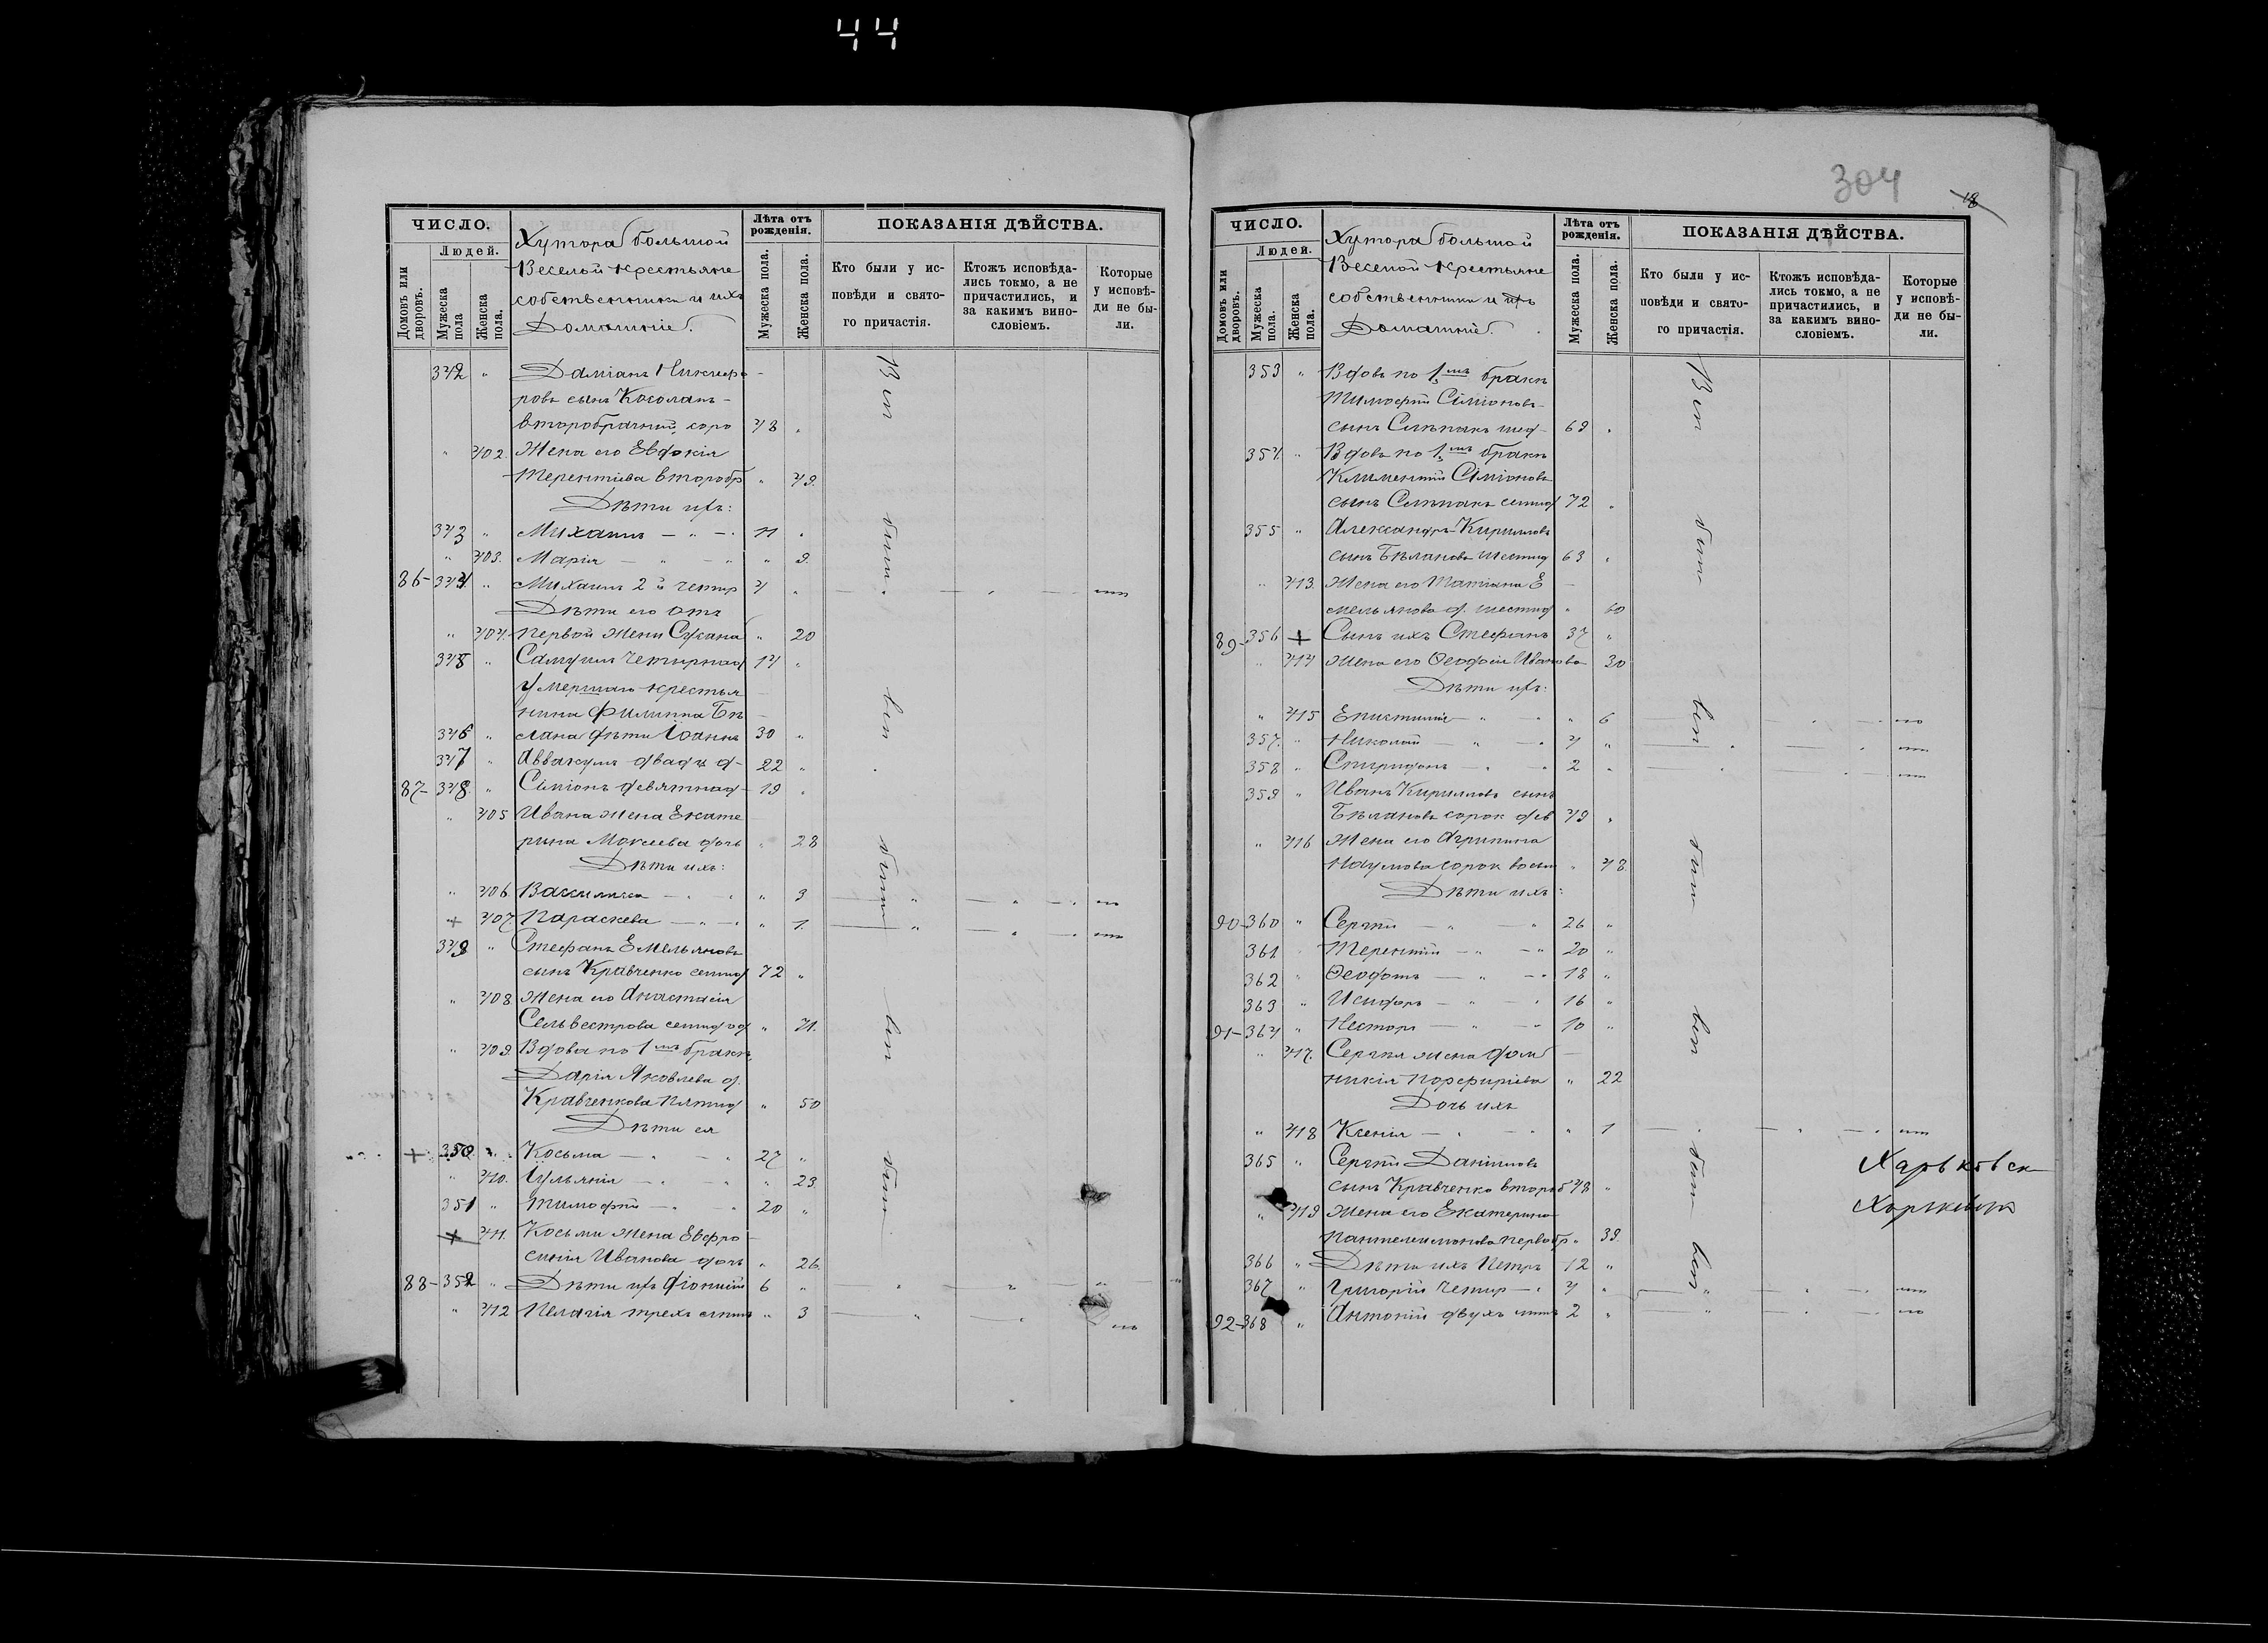 44
ЧИСЛО.
Людей.
Домовъ или дворовъ.
Мужеска пола
Женска пола.
Хутора большой
Веселой крестьяне
собственники и ихъ
Домашніе.
Лѣта отъ рожденія.
Мужеска пола.
Женска пола.
ПОКАЗАНІЯ ДѢЙСТВА.
Кто были у ис-
повѣди и свято-
го причастія.
Ктожъ исповѣда-
лись токмо, а не
причастились, и
за какимъ вино-
словіемъ.
Которые
у исповѣ-
ди не бы-
ли.
342 " Даміанъ Никифо
ровъ сынъ
второбрачный, соро 48 "
" 402. Жена его Евдокія
Терентіева второбр " 49.
Дѣти ихъ:
343 " Михаилъ — " — 11 "
" 403. Марія — " — " 9.
86- 344. " Михаилъ 2й четыр 4 "
Дѣти его отъ
" 404. первой жены 20
345 " Самуилъ четырнад 14 "
умершаго крестья
нина Филиппа Бѣ
346 " лана дѣти Іоаннъ 30 "
347 " Аввакумъ двадц д- 22 "
87- 348. " Симіонъ девятнад- 19 "
" 405 Ивана жена Екате
рина Мокіева дочь " 28
Дѣти ихъ:
" 406. Василиса — " 3
+ 407. Параскева — " — " 1.
349 " Стефанъ Емельяновъ
сынъ Кравченко семид 72 "
" 408. Жена его Анастасія
Сельвестрова семид од " 71.
" 409. Вдова по 1мъ бракѣ,
Дарія Яковлева д.
Кравченкова пятид " 50
Дѣти ея
+ 350. " Косьма — " — 27 "
" 410. Іульянія — " — " 23
351 " Тимофей — " 20 "
+ 411. Косьмы жена Евфро
синія Иванова дочь " 26.
88- 352 " Дѣти ихъ Діонисій 6 "
" 412 Пелагія трехъ лѣтъ " 3
Всѣ были
всѣ были
всѣ были
304
18
ЧИСЛО.
Людей.
Домовъ или дворовъ.
Мужеска пола.
Женска пола.
Хутора большой
Веселой крестьяне
собственники и ихъ
Домашніе.
Лѣта отъ рожденія.
Мужеска пола.
Женска пола.
ПОКАЗАНІЯ ДѢЙСТВА.
Кто были у ис-
повѣди и свято-
го причастія.
Ктожъ исповѣда-
лись токмо, а не
причастились, и
за какимъ вино-
словіемъ.
Которые
у исповѣ-
ди не бы-
ли.
353 " Вдовъ по 1мъ бракѣ
Тимофей Симіоновъ
сынъ Слѣпакъ шед- 69 "
354. " Вдовъ по 1мъ бракѣ
Климентій Симіоновъ
сынъ Слѣпакъ семид 72 "
355 " Александръ Кирилловъ
сынъ Бѣлановъ шестид 63 "
" 413. Жена его Татіана Е
мельянова д. шестид " 60
89- 356 + Сынъ ихъ Стефанъ 37 "
" 414 Жена его Ѳеодосія Иванова 30
Дѣти ихъ:
" 415 Епистимія — " — " 6
357. " Николай — " — 4 "
358 " Спиридонъ — " — 2 "
359 " Иванъ Кирилловъ сынъ
Бѣлановъ сорок дев 49 "
" 416 Жена его Агрипина
Наумова сорок восем " 48.
Дѣти ихъ:
90- 360 " Сергѣй — " 26 "
361 Терентій — " — 20 "
362 " Ѳеодотъ — " — 18 "
363 " Исидоръ — " 16 "
91- 364 " Несторъ — " — 10 "
" 417. Сергѣя жена Дом
никія Порфиріева " 22
Дочь ихъ
" 418 Ксенія — " — " 1
365 " Сергѣй Даніиловъ
сынъ Кравченко второб 48 "
" 419 Жена его Екатерина
Пантелеимонова первобр " 39.
366 " Дѣти ихъ Петръ 12 "
367 " Григорій четыр — " 4 "
92- 368 " Антоній двухъ лѣтъ 2 "
Всѣ были
всѣ были
всѣ были
всѣ
Харьковск